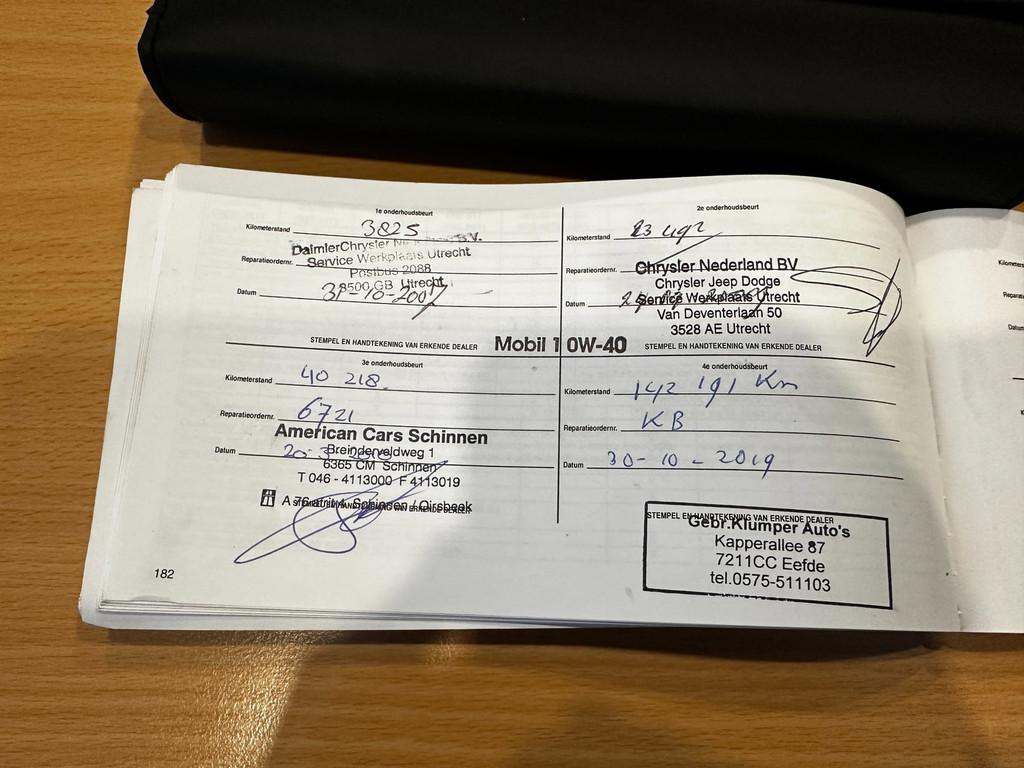 1e onderhoudsbeurt
Kilometerstand 3825
DaimlerChrysler B.V.
Reparatieordernr. Service Werkplaats Utrecht
Postbus 2088
3500 GB Utrecht
Datum 31-10-2007
STEMPEL EN HANDTEKENING VAN ERKENDE DEALER
2e onderhoudsbeurt
Kilometerstand 23
Reparatieordernr. Chrysler Nederland BV
Chrysler Jeep Dodge
Datum Service Werkplaats Utrecht
Van Deventerlaan 50
3528 AE Utrecht
Mobil 1 0W-40 STEMPEL EN HANDTEKENING VAN ERKENDE DEALER
3e onderhoudsbeurt
Kilometerstand 40 218
Reparatieordernr. 6721
American Cars Schinnen
Datum 20-3 Breinderveldweg 1
6365 CM Schinnen
T 046 - 4113000 F 4113019
A 76 afrit 4 Schinnen / Oirsbeek
STEMPEL EN HANDTEKENING VAN ERKENDE DEALER
4e onderhoudsbeurt
Kilometerstand 142 191 Km
Reparatieordernr. KB
Datum 30-10-2019
STEMPEL EN HANDTEKENING VAN ERKENDE DEALER
Gebr.Klumper Auto's
Kapperallee 87
7211CC Eefde
tel.0575-511103
182